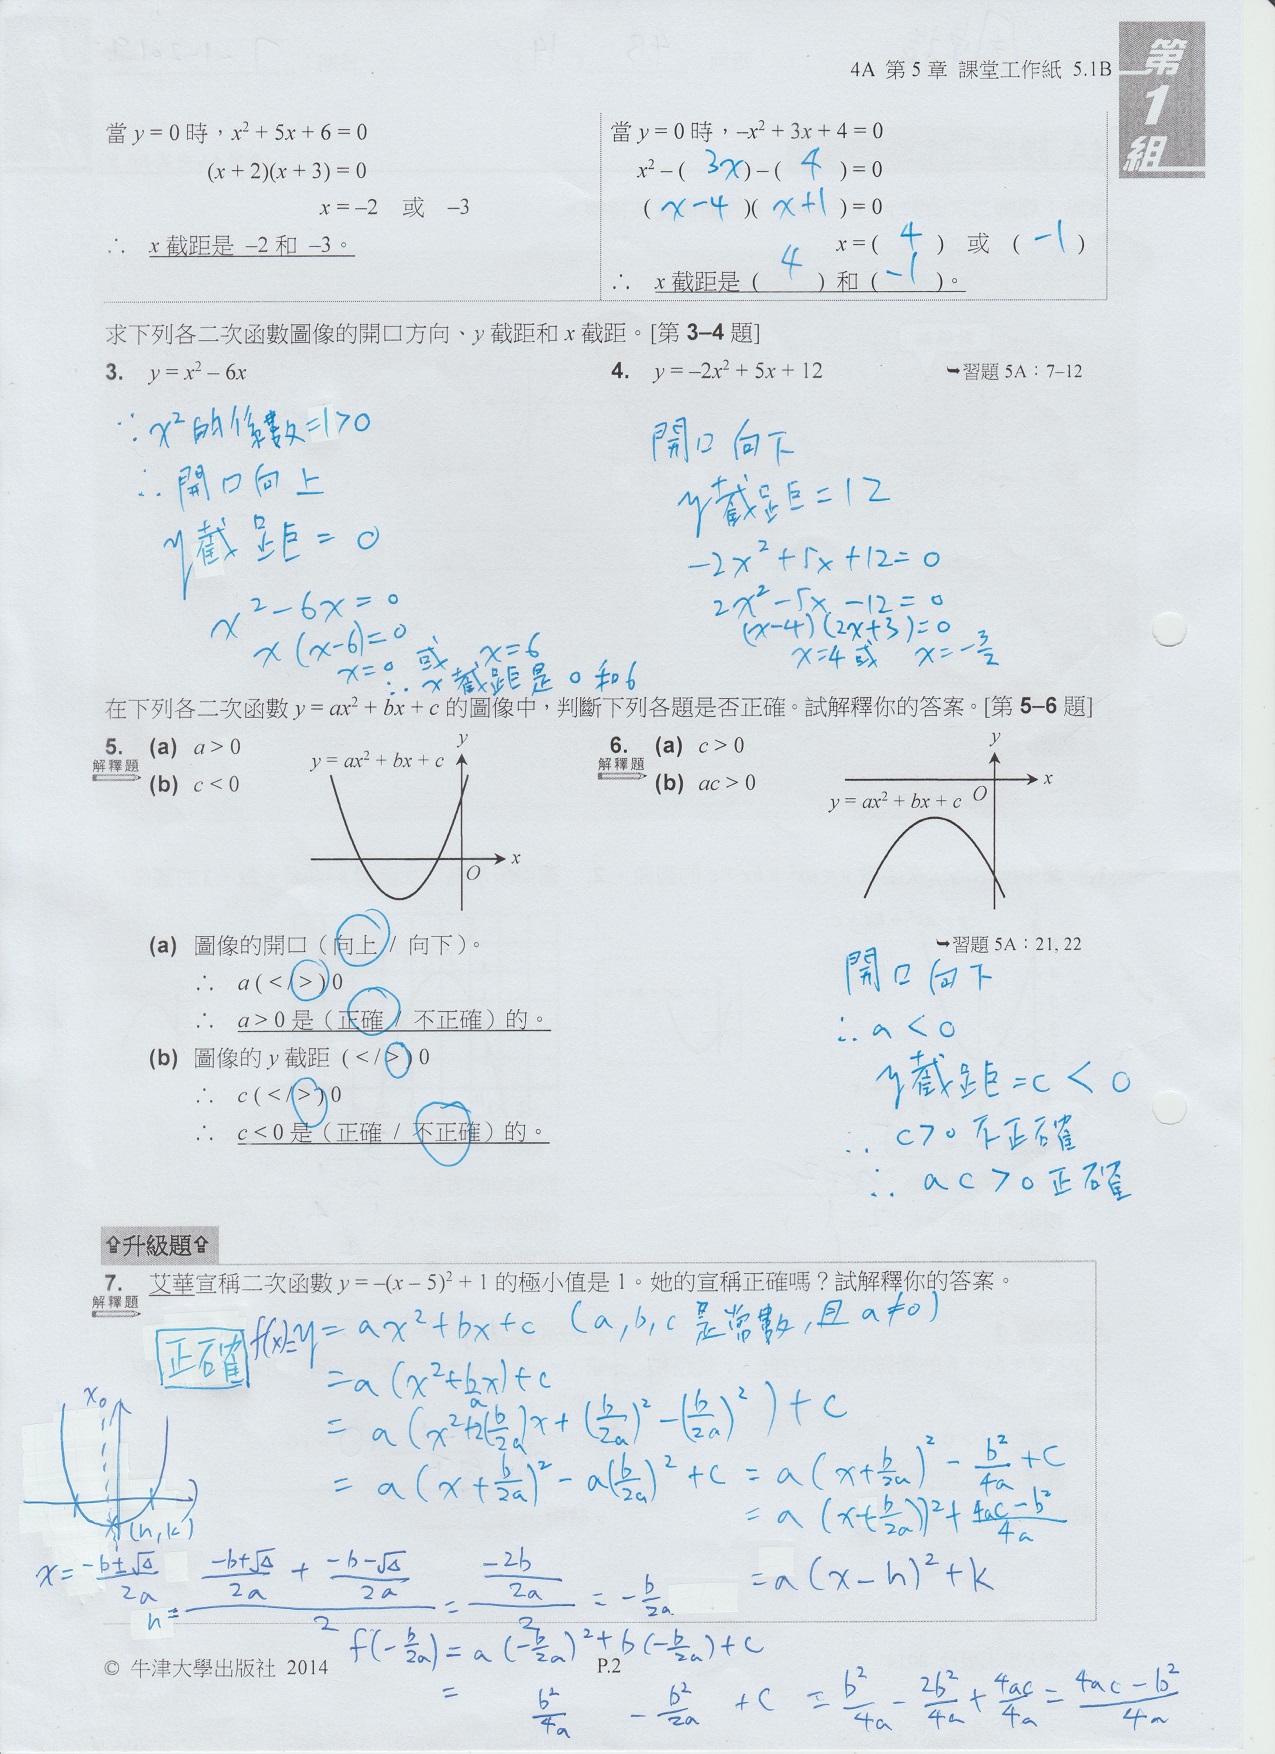 4A 第 5 章 課堂工作紙 5.1B
第
1
組
當 y = 0 時，x² + 5x + 6 = 0
(x + 2)(x + 3) = 0
x = –2 或 –3
∴ x 截距是 –2 和 –3。
當 y = 0 時，–x² + 3x + 4 = 0
x² – ( 3x ) – ( 4 ) = 0
( x-4 )( x+1 ) = 0
x = ( 4 ) 或 ( -1 )
∴ x 截距是 ( 4 ) 和 ( -1 )。
求下列各二次函數圖像的開口方向、y 截距和 x 截距。[第 3–4 題]
3. y = x² – 6x
∵ x²的係數=1>0
∴ 開口向上
y截距 = 0
x²-6x=0
x(x-6)=0
x=0 或 x=6
∴ x 截距是 0 和 6
4. y = –2x² + 5x + 12
➥習題 5A：7–12
開口向下
y截距=12
-2x²+5x+12=0
2x²-5x-12=0
(x-4)(2x+3)=0
x=4 或 x=-3/2
在下列各二次函數 y = ax² + bx + c 的圖像中，判斷下列各題是否正確。試解釋你的答案。[第 5–6 題]
5. (a) a > 0
解釋題
(b) c < 0
y = ax² + bx + c
y
x
O
(a) 圖像的開口（向上 / 向下）。
∴ a ( < / > ) 0
∴ a > 0 是（正確 / 不正確）的。
(b) 圖像的 y 截距 ( < / > ) 0
∴ c ( < / > ) 0
∴ c < 0 是（正確 / 不正確）的。
6. (a) c > 0
解釋題
(b) ac > 0
y
x
O
y = ax² + bx + c
➥習題 5A：21, 22
開口向下
∴ a < 0
y截距=c < 0
∴ c>0 不正確
∴ ac>0 正確
⇧升級題⇧
7. 艾華宣稱二次函數 y = –(x – 5)² + 1 的極小值是 1。她的宣稱正確嗎？試解釋你的答案。
解釋題
正確
f(x)=y = ax²+bx+c (a,b,c 是常數,且 a≠0)
=a(x²+b/a x)+c
= a(x²+2(b/2a)x+(b/2a)²-(b/2a)²)+c
= a(x+b/2a)²-a(b/2a)²+c = a(x+b/2a)²-b²/4a+c
= a(x+b/2a)²+(4ac-b²)/4a
=a(x-h)²+k
(h,k)
x=(-b±√Δ)/2a
h=((-b+√Δ)/2a+(-b-√Δ)/2a)/2=(-2b/2a)/2=-b/2a
f(-b/2a)=a(-b/2a)²+b(-b/2a)+c
= b²/4a - b²/2a +c = b²/4a-2b²/4a+4ac/4a=(4ac-b²)/4a
© 牛津大學出版社 2014
P.2